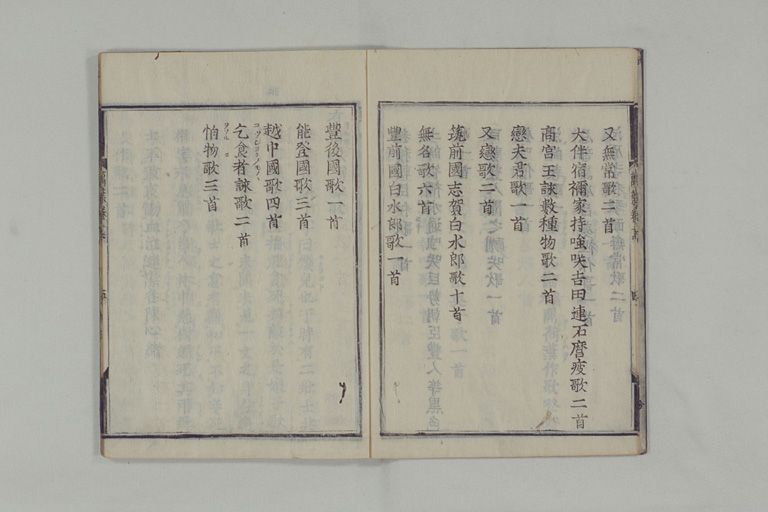 又無常歌二首
大伴宿禰家持嗤咲吉田連石麿疲歌二首
高宮王詠数種物歌二首
戀夫君歌一首
又戀歌二首
筑前國志賀白水郎歌十首
無名歌六首
豐前國白水郎歌一首
豐後國歌一首
能登國歌三首
越中國歌四首
乞食者詠歌二首
怕物歌三首